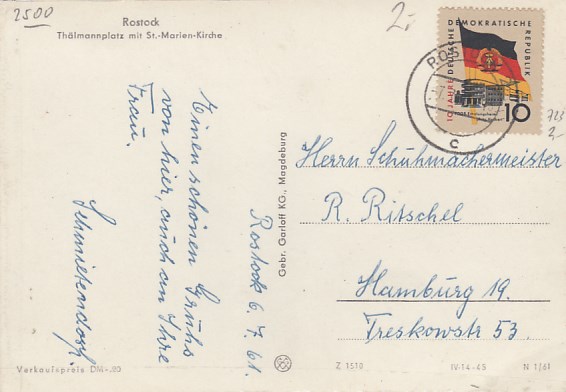 2500
2.-
Rostock
Thälmannplatz mit St.-Marien-Kirche
Einen schönen Gruß
von hier, auch an Ihre
Frau.
Schmiedendorf.
Rostock 6.7.61.
Gebr. Garloff KG., Magdeburg
10 JAHRE DEUTSCHE DEMOKRATISCHE REPUBLIK
10
ROS
c
Herrn Schuhmachermeister
R. Ritschel
Hamburg 19.
Treskowstr 53.
Verkaufspreis DM -.20
Z 1510
IV-14-45
N 1/61